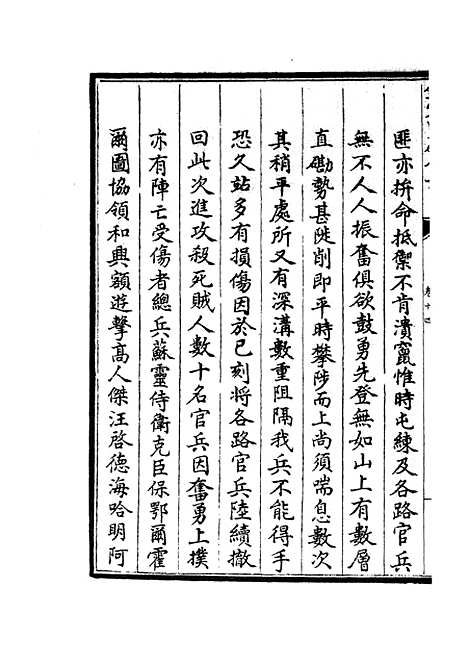 匪亦拚命抵禦不肯潰竄惟時屯練及各路官兵
無不人人振奮俱欲鼓勇先登無如山上有數層
直磡勢甚陡削即平時攀陟而上尚須喘息數次
其稍平處所又有深溝數重阻隔我兵不能得手
恐久站多有損傷因於巳刻將各路官兵陸續撤
回此次進攻殺死賊人數十名官兵因奮勇上撲
亦有陣亡受傷者總兵蘇靈侍衛克臣保鄂爾霍
爾圖協領和興額遊擊高人傑汪啓德海哈明阿
卷十四